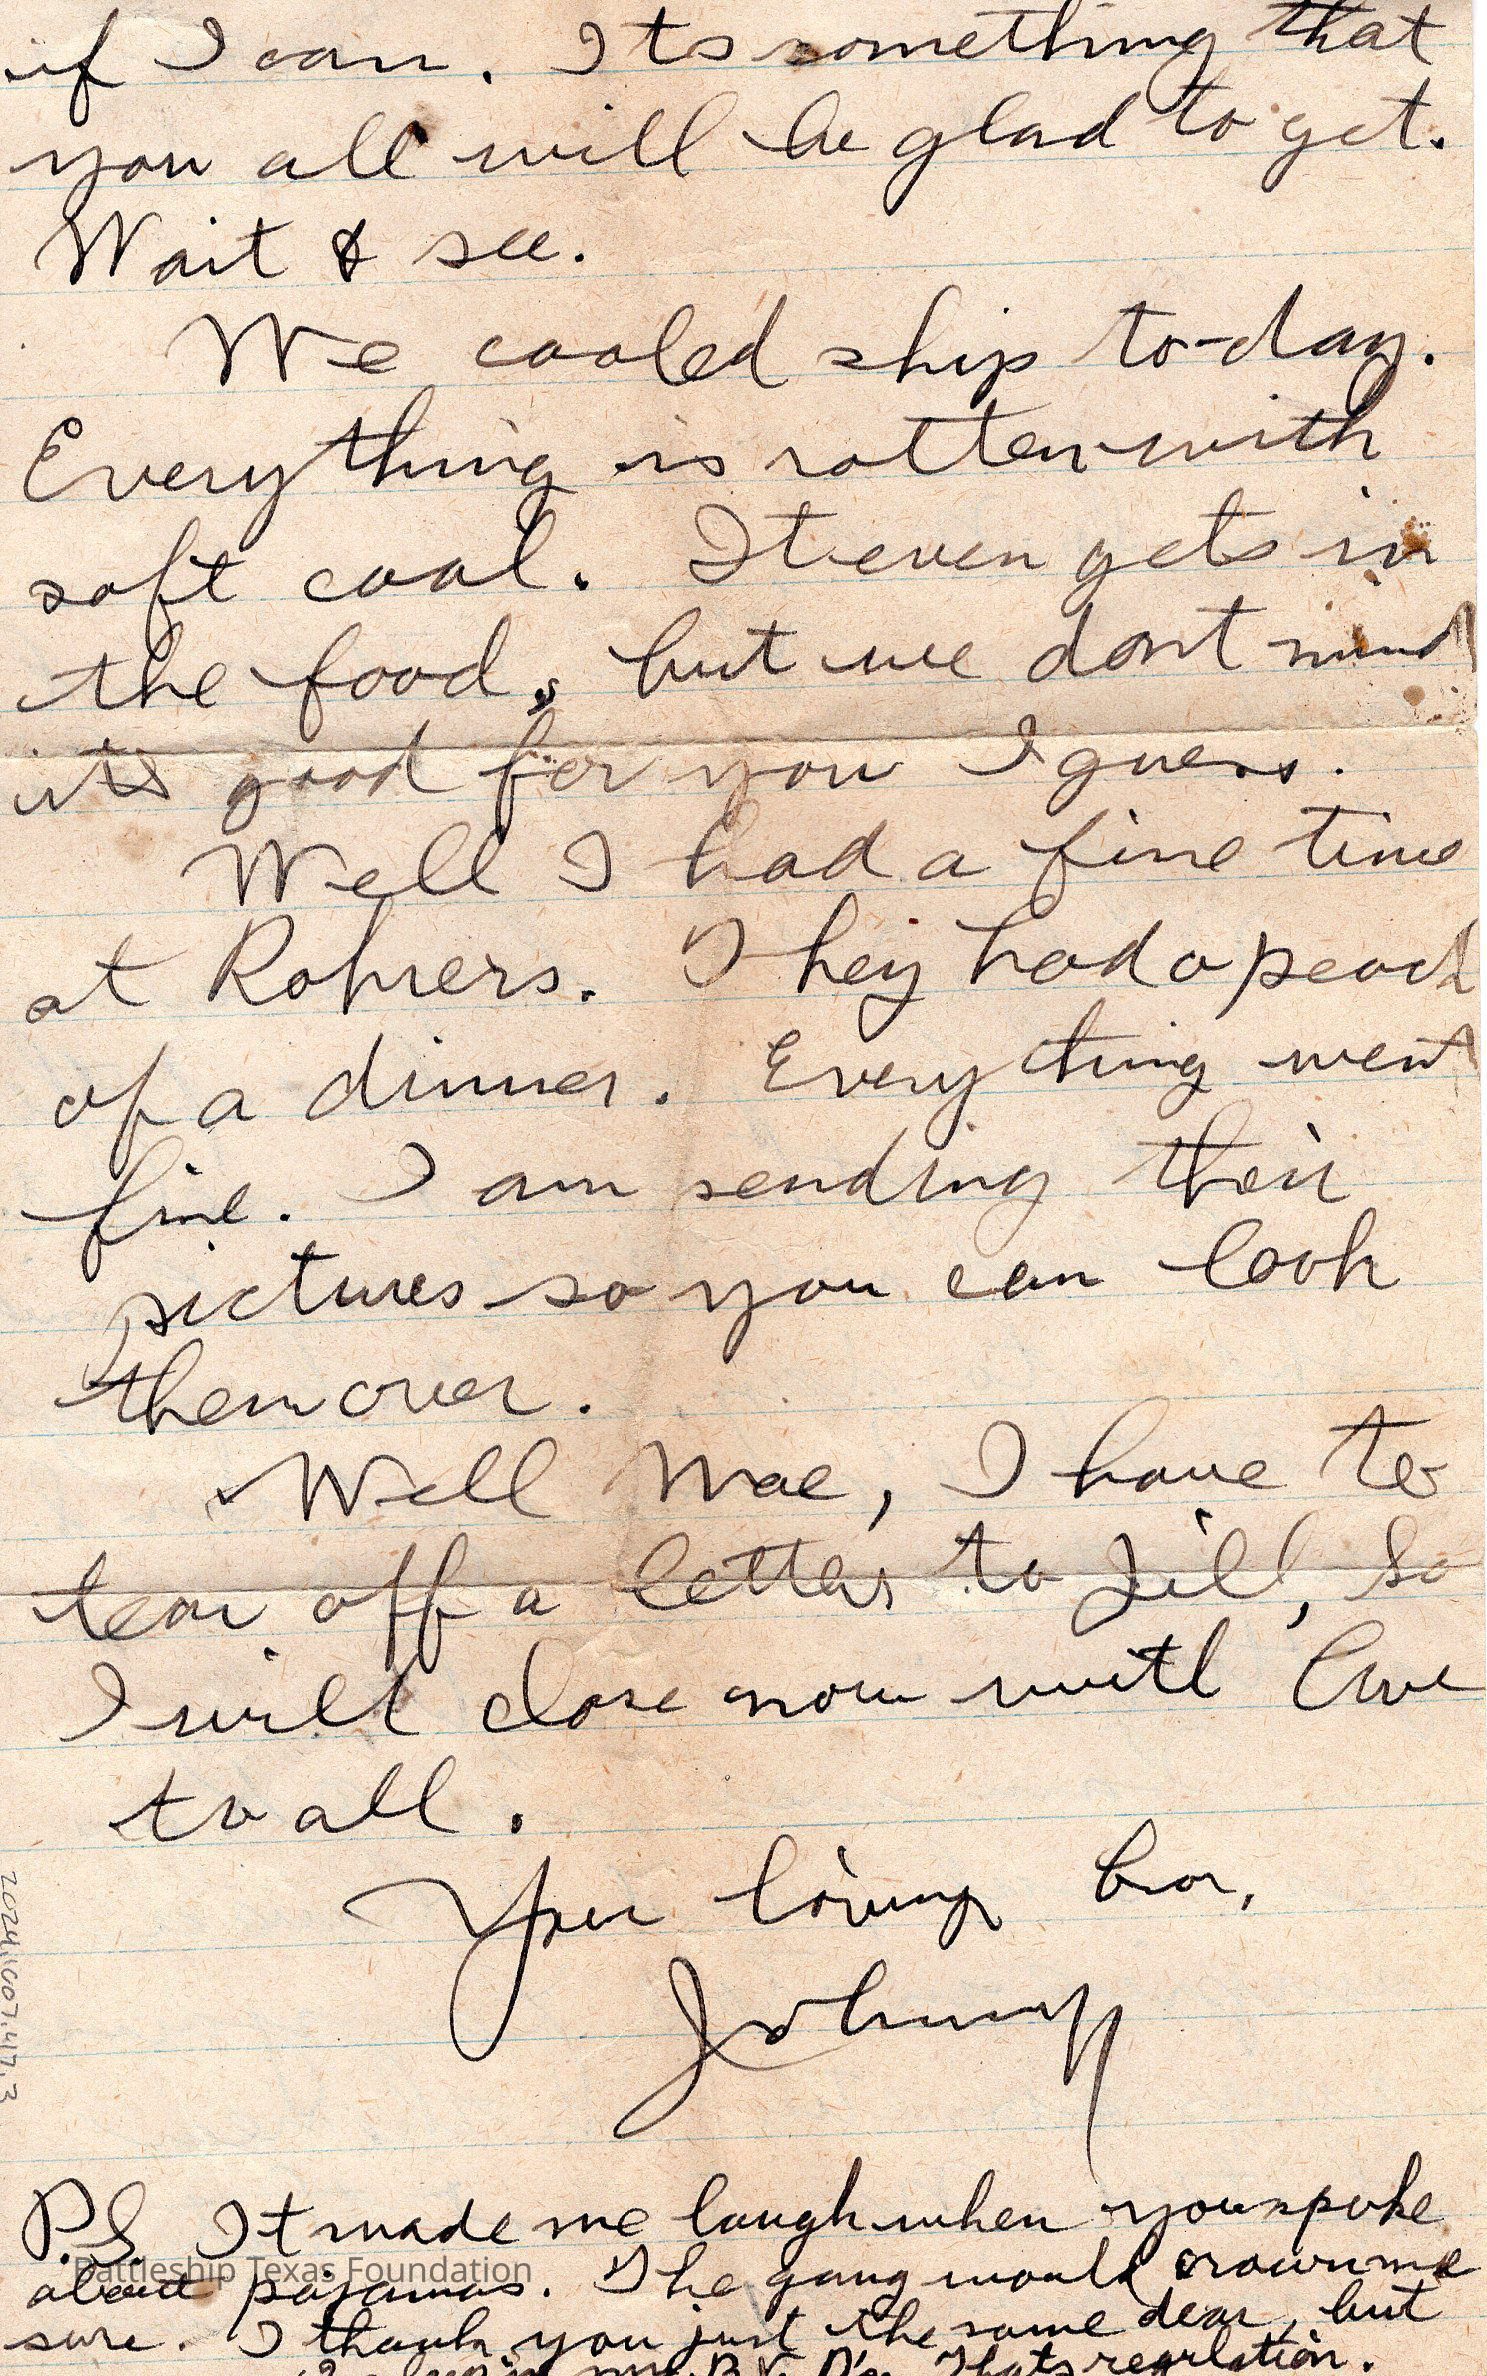 if I can. Its something that
you all will be glad to get.
Wait & see.
We coaled ship to-day.
Everything is rotten with
soft coal. It even gets in
the food, but we dont mind
its good for you I guess.
Well I had a fine time
at Rohrers. They had a peach
of a dinner. Everything went
fine. I am sending their
pictures so you can look
them over.
Well Mae, I have to
tear off a letter to Jill, So
I will close now with love
to all.
Your loving bro,
Johnny
P.S. It made me laugh when you spoke
about pajamas. The gang would crown me
sure. I thank you just the same dear, but
in my B.V. D's. Thats reg'lation.
2024.007.417.3
Battleship Texas Foundation